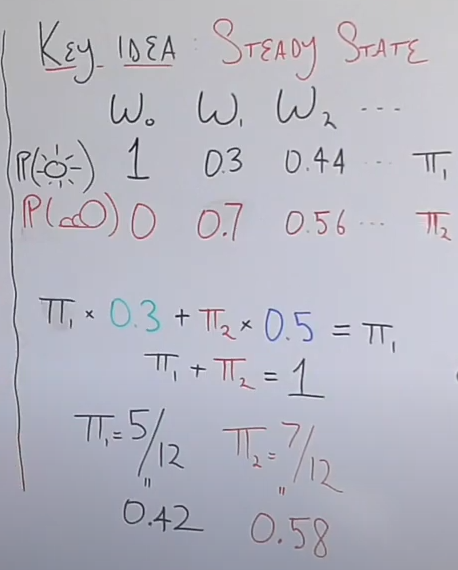 KEY IDEA: STEADY STATE
W₀ W₁ W₂ ...
P(☼) 1 0.3 0.44 ... π₁
P(☁) 0 0.7 0.56 ... π₂
π₁ × 0.3 + π₂ × 0.5 = π₁
π₁ + π₂ = 1
π₁ = 5/12 π₂ = 7/12
" "
0.42 0.58